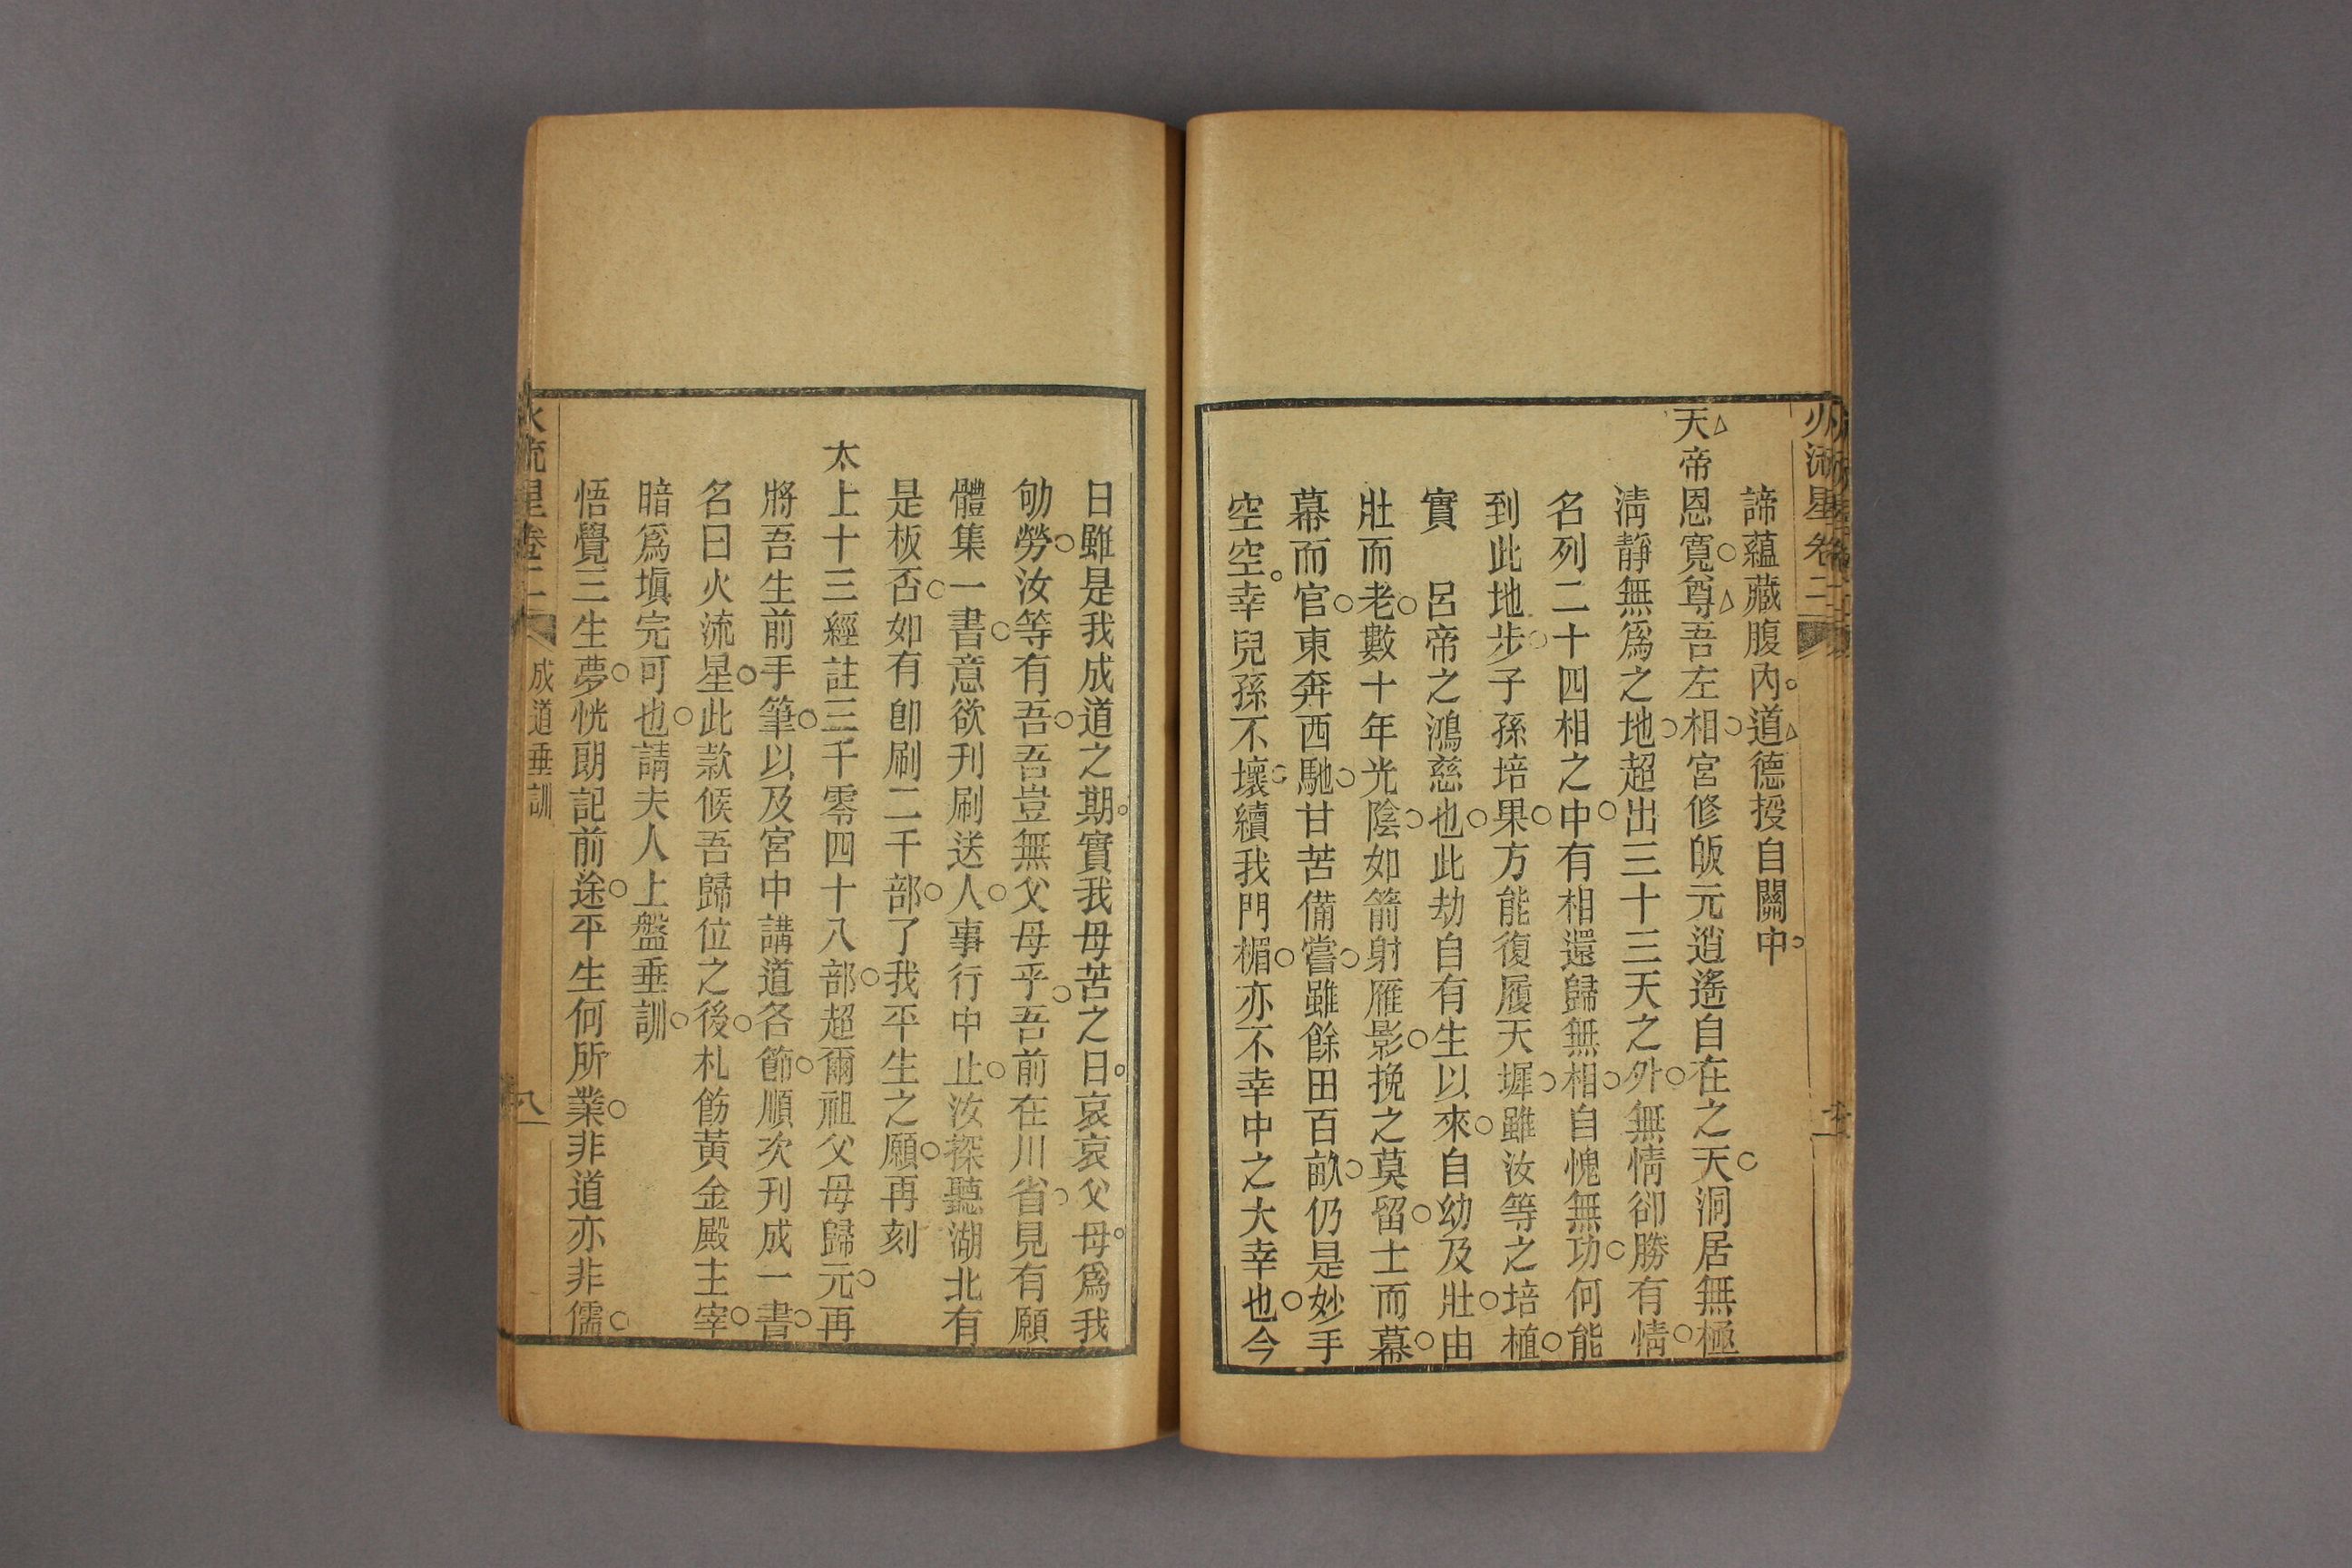 火流星卷二
諦蘊藏腹內。道德授自關中。
天帝恩寬。尊吾左相。宮修皈元逍遙自在之天。洞居無極
淸靜無爲之地。超出三十三天之外。無情卻勝有情。
名列二十四相之中。有相還歸無相。自愧無功。何能
到此地步。子孫培果。方能復履天墀。雖汝等之培植。
實 呂帝之鴻慈也。此劫自有生以來。自幼及壯。由
壯而老。數十年光陰。如箭射雁影。挽之莫留。士而幕。
幕而官。東奔西馳。甘苦備嘗。雖餘田百畝。仍是妙手
空空。幸兒孫不壞。續我門楣。亦不幸中之大幸也。今
日雖是我成道之期。實我母苦之日。哀哀父母。爲我
劬勞。汝等有吾。吾豈無父母乎。吾前在川省。見有願
體集一書。意欲刊刷送人。事行中止。汝探聽湖北有
是板否。如有卽刷二千部。了我平生之願。再刻
太上十三經註三千零四十八部。超爾祖父母歸元。再
將吾生前手筆。以及宮中講道各節。順次刊成一書。
名曰火流星。此款候吾歸位之後。札飭黃金殿主宰。
暗爲塡完可也。請夫人上盤垂訓。
悟覺三生夢。恍朗記前途。平生何所業。非道亦非儒。
火流星卷二 成道垂訓 八